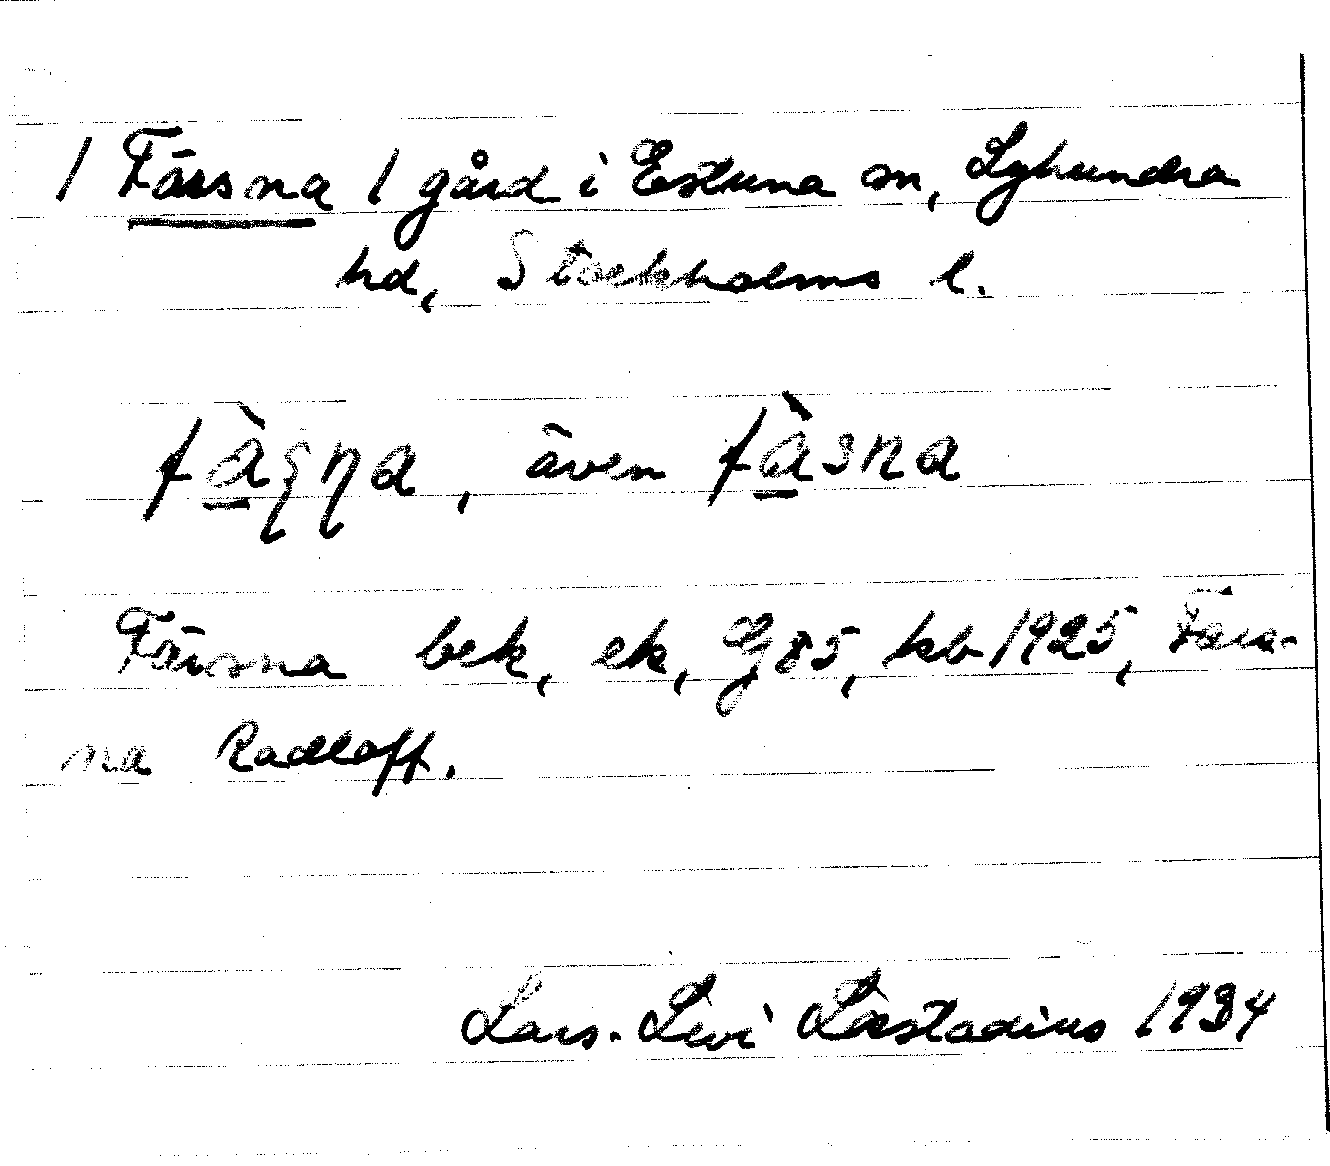 / Färsna / gård i Estuna sn, Lyhundra
hd, Stockholms l.
fàʂɳa, även fàsna
Färsna bek, ek, G85, kb 1925, Färs-
na Radloff.
Lars-Levi Læstadius 1934